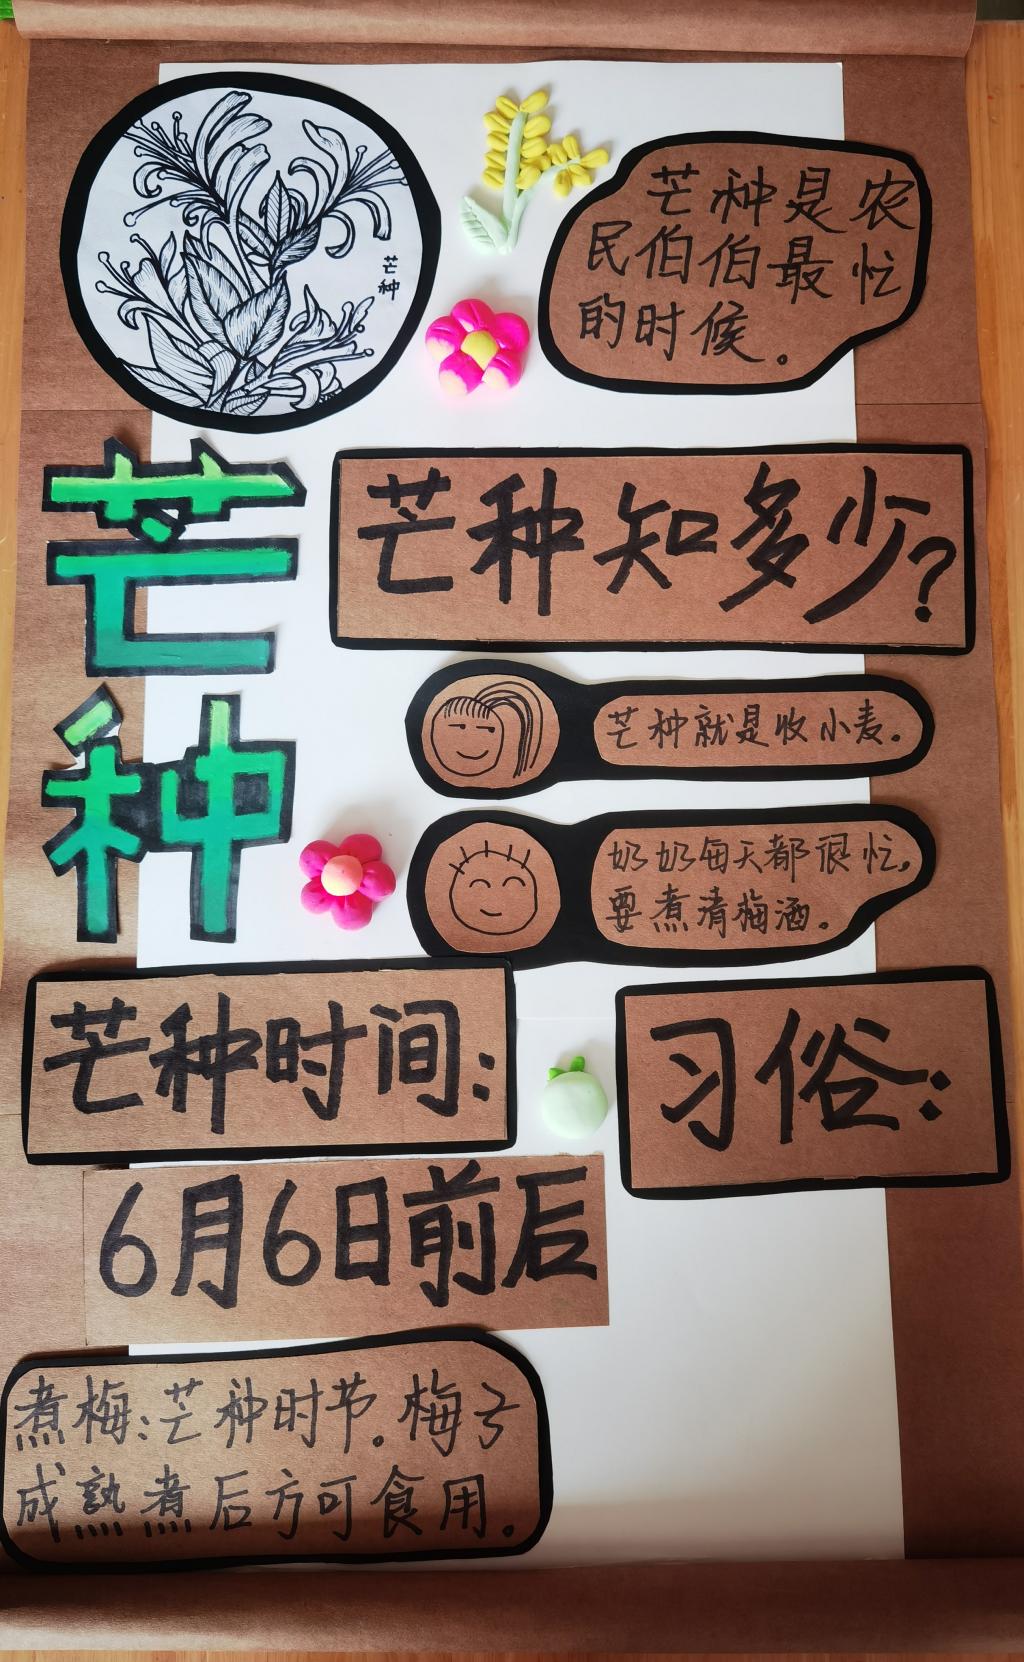 芒种
芒种是农
民伯伯最忙
的时候。
芒种
芒种知多少?
芒种就是收小麦。
奶奶每天都很忙,
要煮清梅酒。
芒种时间:
习俗:
6月6日前后
煮梅:芒种时节。梅子
成熟煮后方可食用。